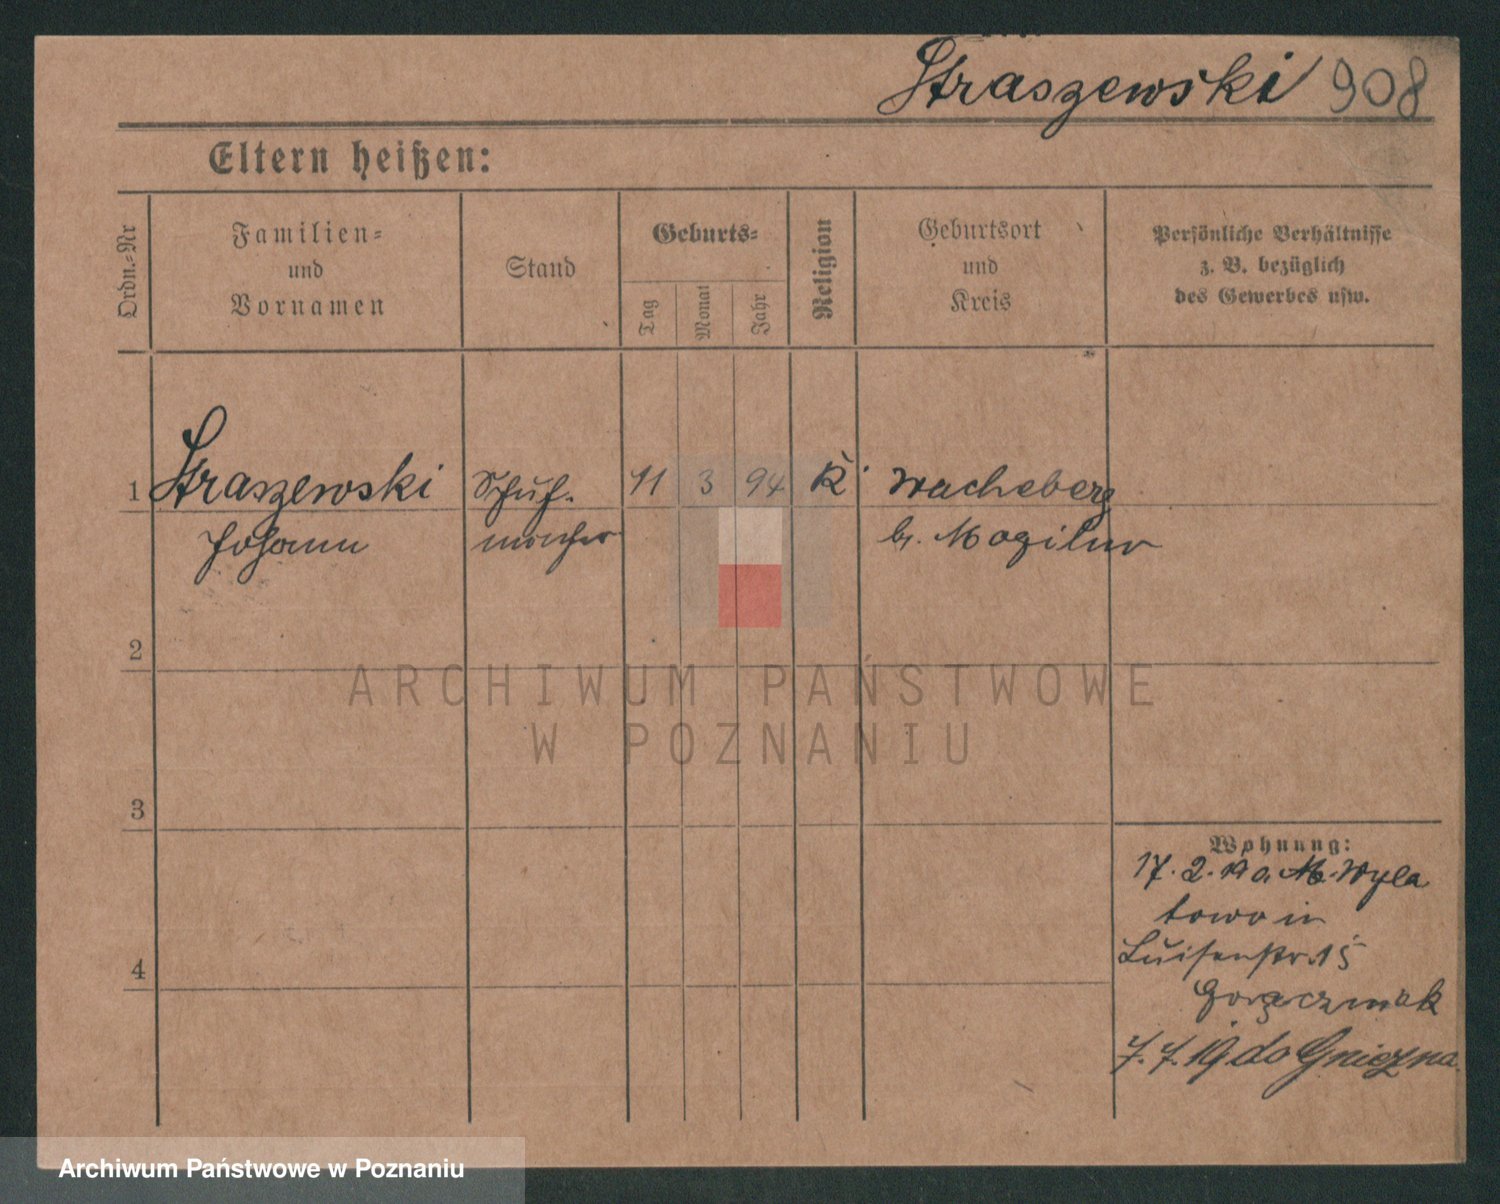 Straszewski 908
Eltern heißen:
Ordn.-Nr
Familien-
und
Vornamen
Stand
Geburts-
Tag
Monat
Jahr
Religion
Geburtsort
und
Kreis
Persönliche Verhältnisse
z. B. bezüglich
des Gewerbes usw.
1 Straszewski Schuh- 11 3 94 K. Wacheberg
Johann macher b. Mogilno
2
3
4
Wohnung:
17.2.19 a. M. Wyla
towo in
Luisenstr. 15
7.7.19 do Gniezna.
ARCHIWUM PAŃSTWOWE
W POZNANIU
Archiwum Państwowe w Poznaniu